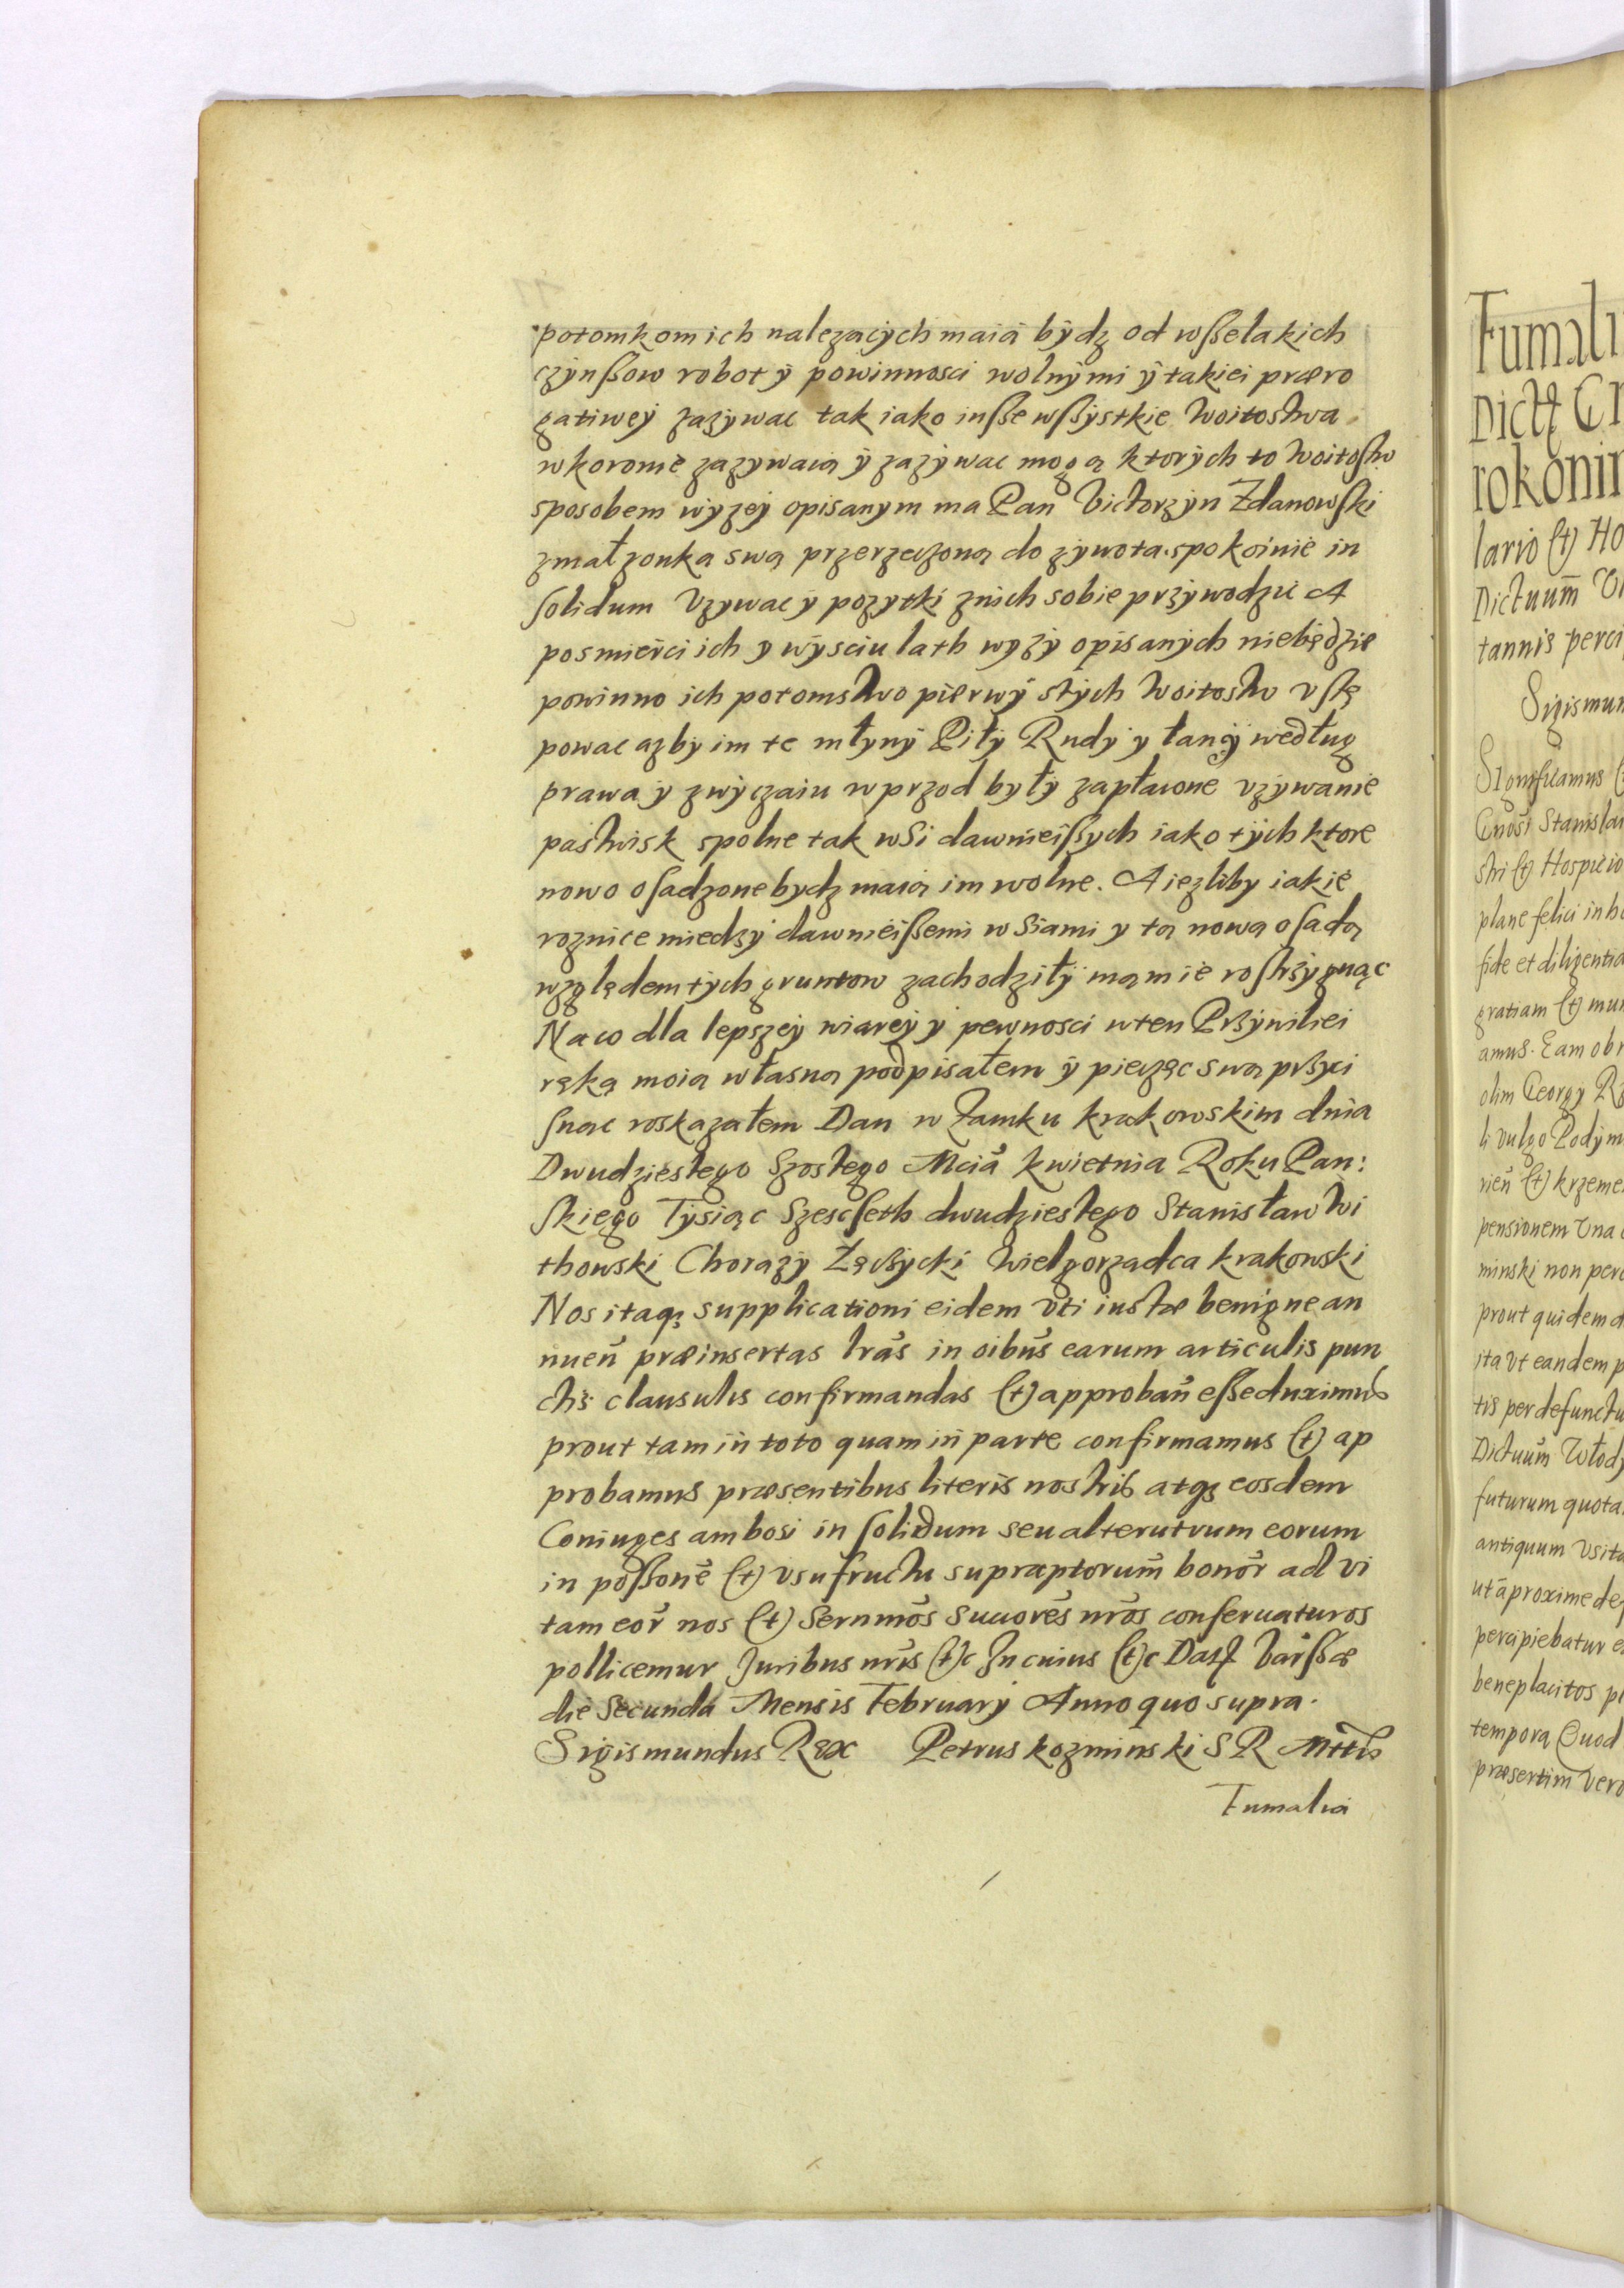 potomkom ich nalezacÿch maia bÿdz od wsselakich
czÿnssow robot ÿ powinnosci wolnÿmi ÿ takiei præro
gatiweÿ zazÿwac tak iako insse wssÿstkie Woitostwa
w koronie zazÿwaią ÿ zazÿwac mogą ktorÿch to Woitostw
sposobem wÿzeÿ opisanym ma Pan Victorzÿn Zdanowski
z małzonką swą przerzeczoną do zÿwota spokoinie in
solidum Vzÿwac ÿ pozytki znich sobie przÿwodzic A
po smierci ich y wÿsciu lath wyzÿ opisanÿch niebędzie
powinno ich potomstwo pierwÿ stÿch Woitostw vstę
powac azbÿ im te młÿnÿ Piłÿ Rudÿ y łanÿ według
prawa ÿ zwÿczaiu wprzod bÿłÿ zapłacone vzÿwanie
pastwisk spolne tak wsi dawnieissÿch iako tÿch ktore
nowo osadzone bydz maią im wolne. A iezliby iakie
roznice miedzÿ dawnieissemi wsiami y tą nową osadą
względem tÿch gruntow zachodziłÿ mąm ie rostrzÿgnąc
Na co dla lepszeÿ wiareÿ ÿ pewnosci wten Przÿwiliei
ręką moią własną podpisałem ÿ pieczęc swą przyci
snąc roskazałem Dan w Zamku krakowskim dnia
Dwudziestego Szostego Mcia kwietnia Roku Pan:
skiego Tÿsiąc Szescseth dwudziestego Stanisław Wi
thowski Chorazÿ Łęczÿcki Wielgorzadca krakowski
Nos itaq supplicationi eidem vti iustæ benigne an
nuen præinsertas lras in oibus earum articulis pun
ctis clausulis confirmandas (t) approban esse duximus
prout tam in toto quam in parte confirmamus (t) ap
probamus præsentibus literis nostris atq eosdem
Coniuges ambosi in solidum seu alterutrum eorum
in possone (t) vsufructu supraptorum bonor ad vi
tam eor nos (t) Sernmos Succores nros conseruaturos
pollicemur Juribus nris (t)c In cuius (t)c Dat Varssæ
die Secunda Mensis Februarÿ Anno quo supra.
Sigismundus Rex Petrus kozminski S R Mttis
Fumalia
Dictę
lario (t)
Dictuum
tannis
Significamus
Stri (t) Hospicio
plane felici in
fide et diligentia
gratiam (t)
amus. Eam ob
olim Georgÿ
li vulgo Podÿm
pensionem Una
minski non
prout quidem
ita Vt eandem
tis per
Dictuum Włod
futurum
antiquum
percipiebatur
beneplacitos
tempora Quod
præsertim Vero